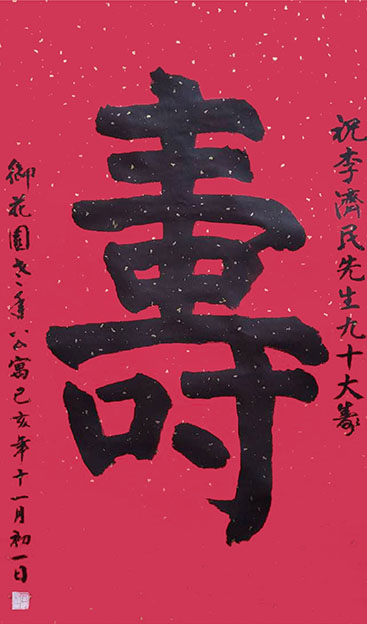 祝李濟民先生九十大壽
壽
御花園老年公寓己亥年十一月初一日